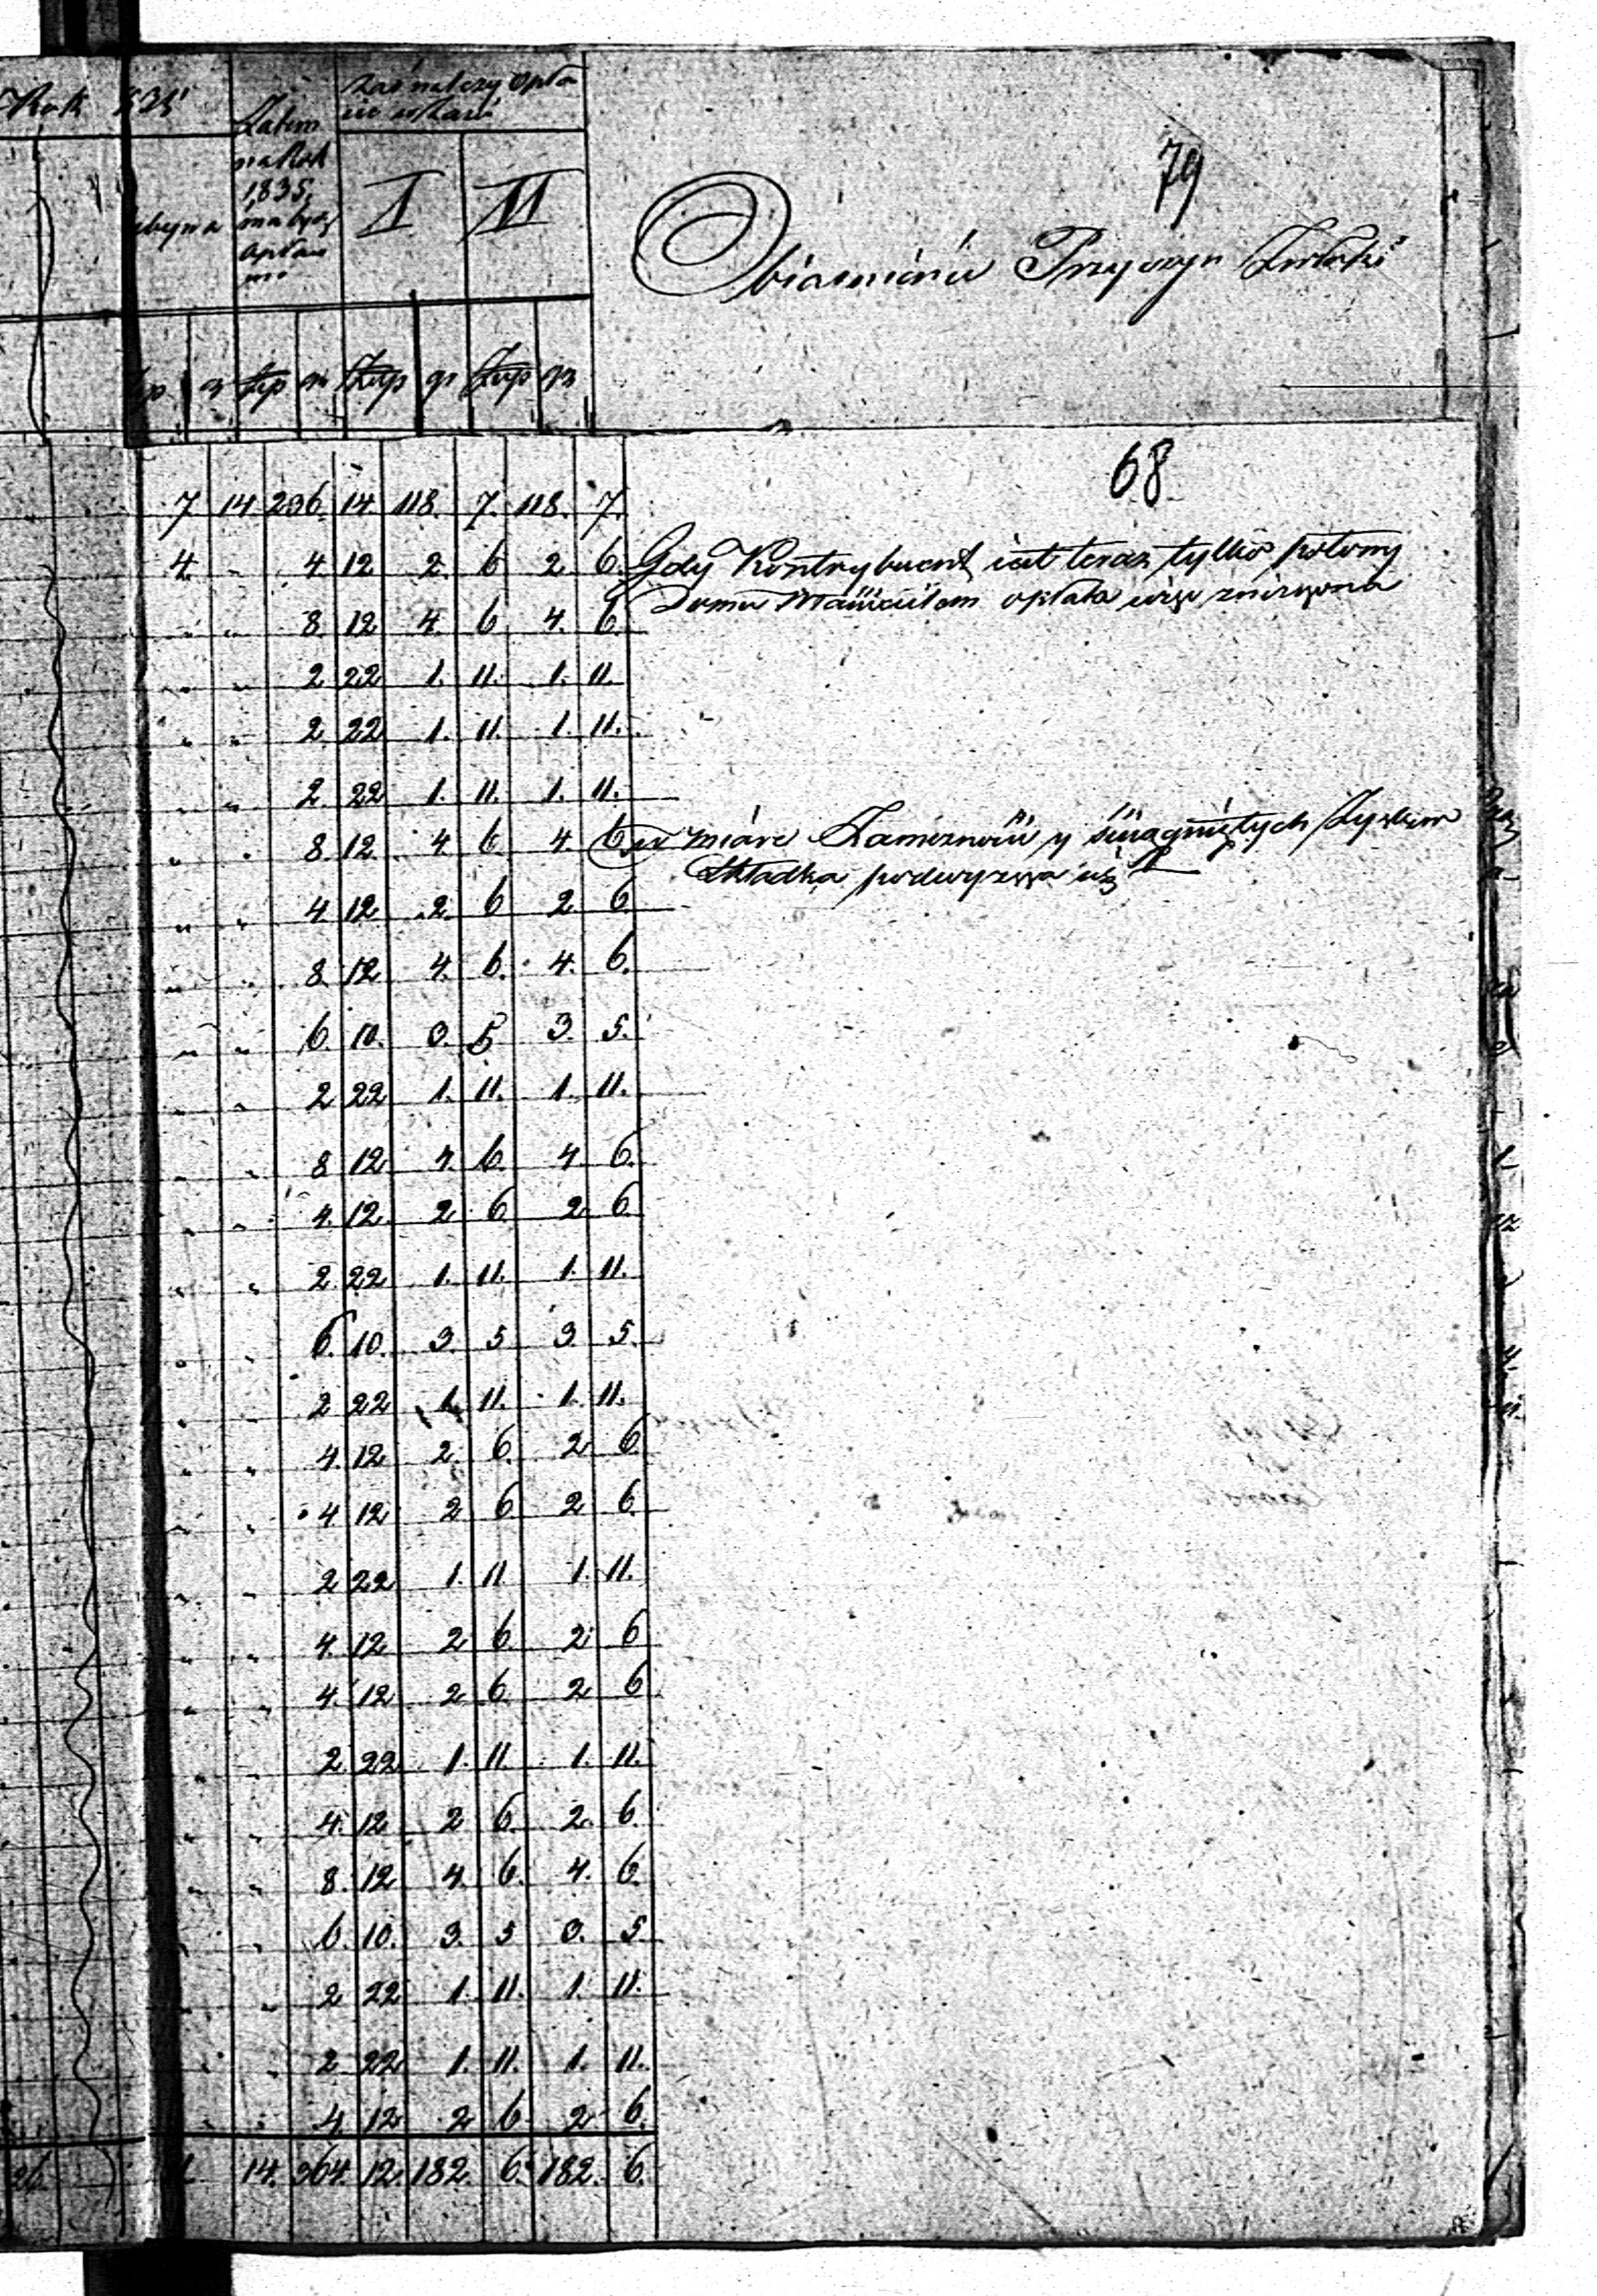 Rok 1835
Zatem
na Rok
1835,
ma bydź
opłaco
no
zaś należy opła
cić w Racie
ubywa
I II
79
Obiasnienie Przyczyn
Złp gr Złp gr Złp gr Złp gr
68
7 14 236 14 118 7. 118. 7.
4 " 4 12 2 6 2 6. Gdy Kontrybuent iest teraz tylko połowy
Domu opłata więc zniżona
" " 8 12 4. 6 4. 6
" " 2 22 1. 11. 1. 11.
" " 2 22 1. 11. 1. 11.
" " 2. 22 1. 11. 1. 11.
" " 8. 12 4 6 4 6 w miarę Zamożności y Zysków
Składka podwyższa się
" " 4 12 2 6 2. 6
" " 8. 12 4. 6. 4. 6.
" " 6. 10. 3. 5 3. 5.
" " 2 22 1. 11. 1. 11.
" " 8 12 4. 6. 4. 6.
" " 4. 12. 2 6 2 6
" " 2. 22 1. 11. 1. 11.
" " 6. 10. 3. 5 3. 5.
" " 2 22 1. 11. 1. 11.
" " 4. 12 2. 6. 2 6
" " 4 12 2 6 2 6
" " 2 22 1. 11 1. 11.
" " 4. 12 2 6. 2 6
" " 4. 12 2 6 2 6
" " 2 22 1. 11. 1. 11.
" " 4. 12 2 6 2. 6.
" " 8. 12 4. 6. 4. 6.
" " 6. 10. 3. 5 3. 5
" " 2 22 1. 11. 1 11.
" " 2 22 1. 11. 1. 11.
" " 4 12 2 6 2 6.
14. 364. 12. 182. 6. 182. 6.